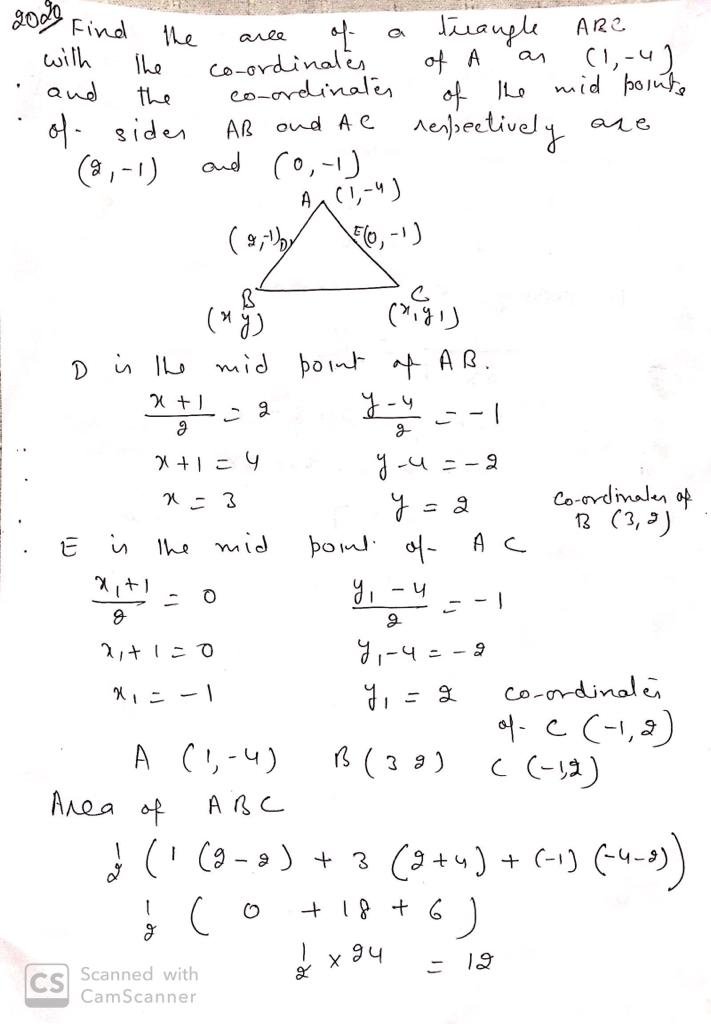 2020 Find the area of a triangle ABC
with the co-ordinates of A as (1,-4)
and the co-ordinates of the mid points
of sides AB and AC respectively are
(2,-1) and (0,-1)
A (1,-4)
(2,-1) D E(0,-1)
B C
(x y) (x₁y₁)
D is the mid point of AB.
(x+1)/2 = 2 (y-4)/2 = -1
x+1=4 y-4=-2
x=3 y=2 co-ordinates of
B (3,2)
E is the mid point of AC
(x₁+1)/2 = 0 (y₁-4)/2 = -1
x₁+1=0 y₁-4=-2
x₁=-1 y₁=2 co-ordinates
of C (-1,2)
A (1,-4) B(3 2) C (-1,2)
Area of ABC
1/2 (1 (2-2) + 3 (2+4) + (-1) (-4-2))
1/2 ( 0 + 18 + 6 )
1/2 × 24 = 12
CS Scanned with
CamScanner